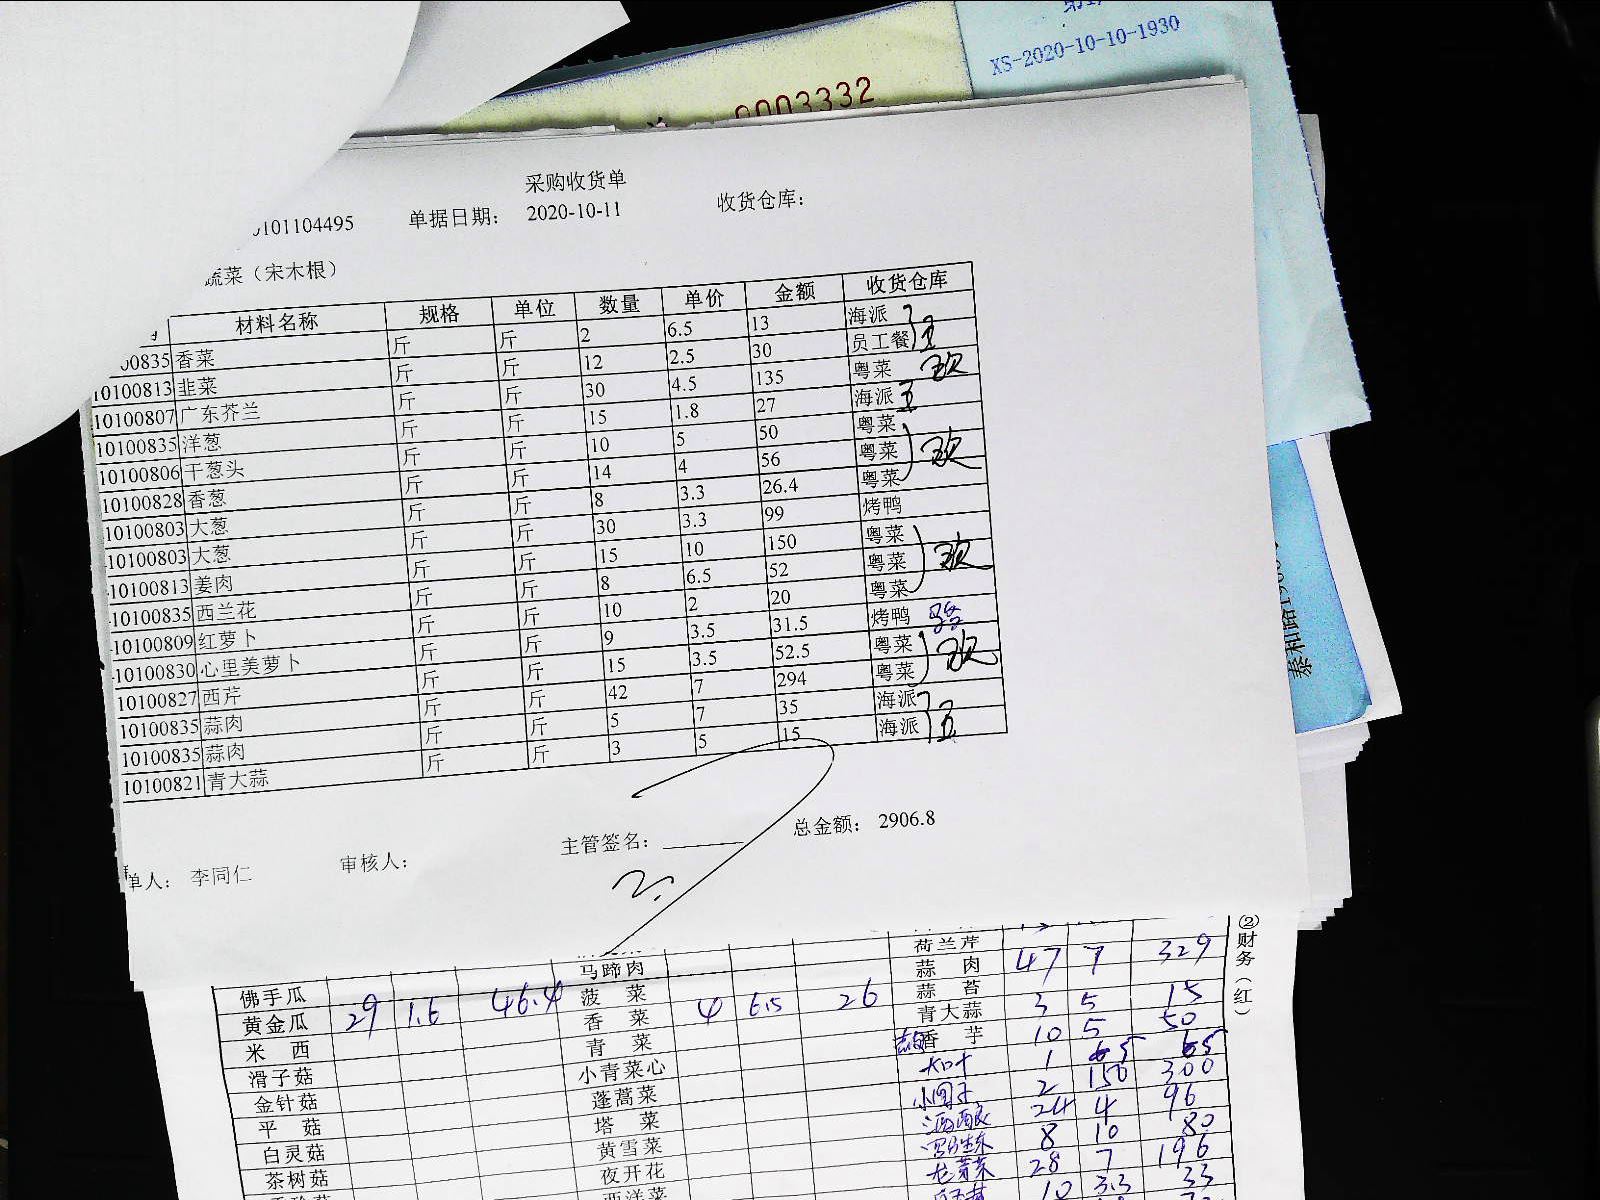 XS-2020-10-10-1930
0003332
采购收货单
0101104495 单据日期： 2020-10-11 收货仓库：
蔬菜（宋木根）
材料名称 规格 单位 数量 单价 金额 收货仓库
00835 香菜 斤 斤 2 6.5 13 海派
10100813 韭菜 斤 斤 12 2.5 30 员工餐
10100807 广东芥兰 斤 斤 30 4.5 135 粤菜
10100835 洋葱 斤 斤 15 1.8 27 海派
10100806 干葱头 斤 斤 10 5 50 粤菜
10100828 香葱 斤 斤 14 4 56 粤菜
10100803 大葱 斤 斤 8 3.3 26.4 粤菜
10100803 大葱 斤 斤 30 3.3 99 烤鸭
10100813 姜肉 斤 斤 15 10 150 粤菜
10100835 西兰花 斤 斤 8 6.5 52 粤菜
10100809 红萝卜 斤 斤 10 2 20 粤菜
10100830 心里美萝卜 斤 斤 9 3.5 31.5 烤鸭
10100827 西芹 斤 斤 15 3.5 52.5 粤菜
10100835 蒜肉 斤 斤 42 7 294 粤菜
10100835 蒜肉 斤 斤 5 7 35 海派
10100821 青大蒜 斤 斤 3 5 15 海派
单人： 李同仁 审核人： 主管签名： 总金额： 2906.8
②财务（红）
泰和路
马蹄肉 荷兰芹
佛手瓜 菠菜 蒜肉 47 7 329
黄金瓜 29 1.6 46.4 香菜 4 6.5 26 蒜苔
米西 青菜 青大蒜 3 5 15
滑子菇 小青菜心 香芋 10 5 50
金针菇 蓬蒿菜 1 65 65
平菇 塔菜 2 150 300
白灵菇 黄雪菜 酒酿 24 4 96
茶树菇 夜开花 8 10 80
西洋菜 28 7 196
10 3.3 33